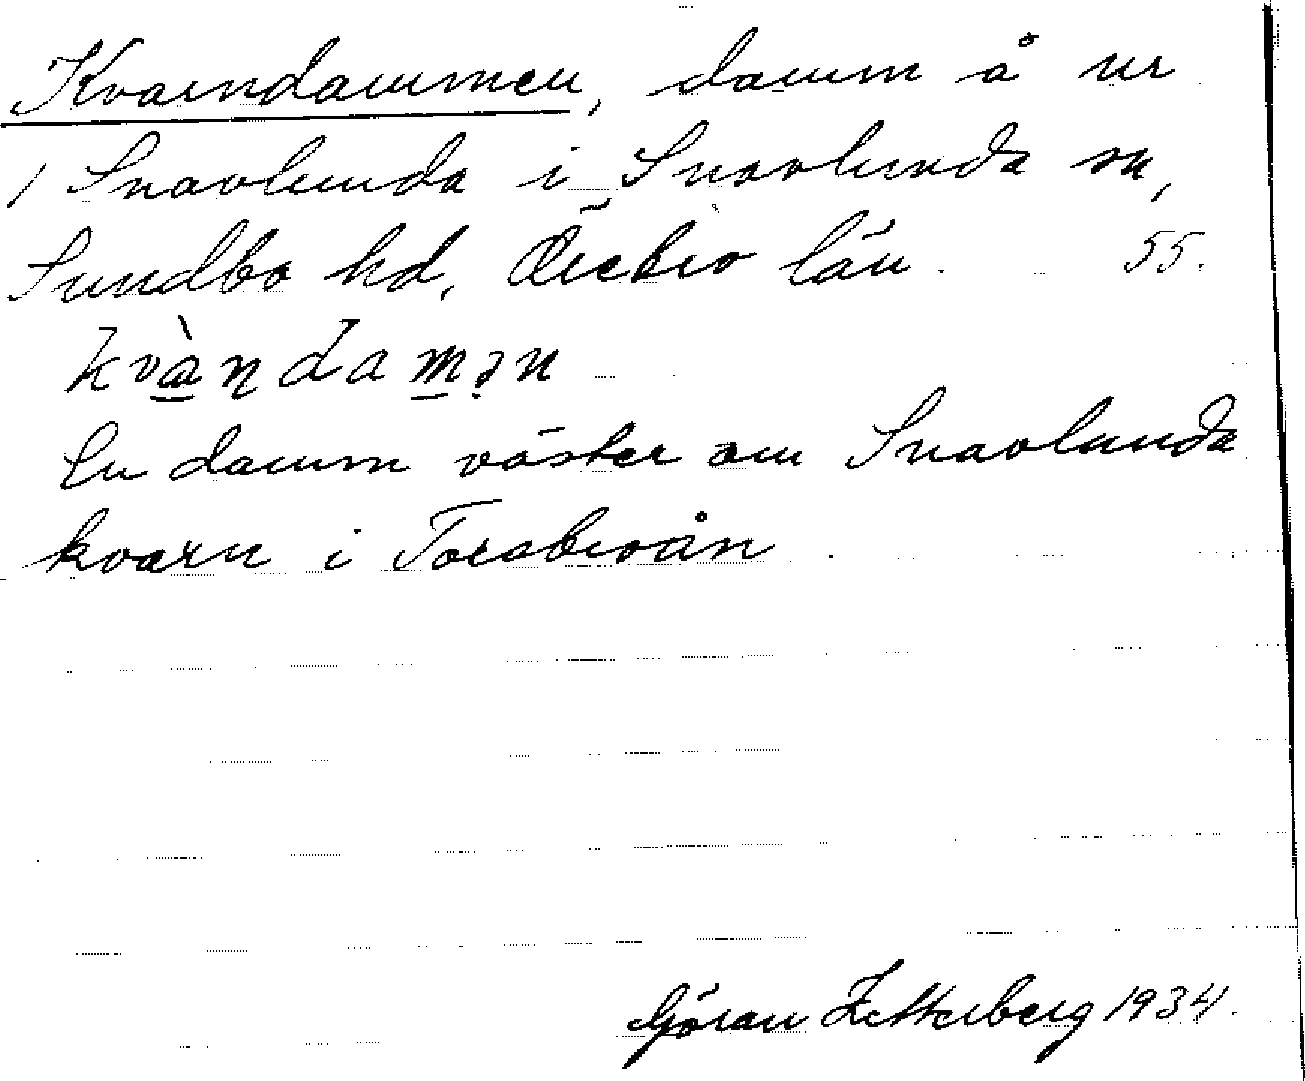 Kvarndammen, damm å nr
1 Snavlunda i Snavlunda sn,
Sundbo hd, Örebro län. 55.
kvàṇdamən
En damm väster om Snavlunda
kvarn i Torabroån.
Göran Zetterberg 1934.